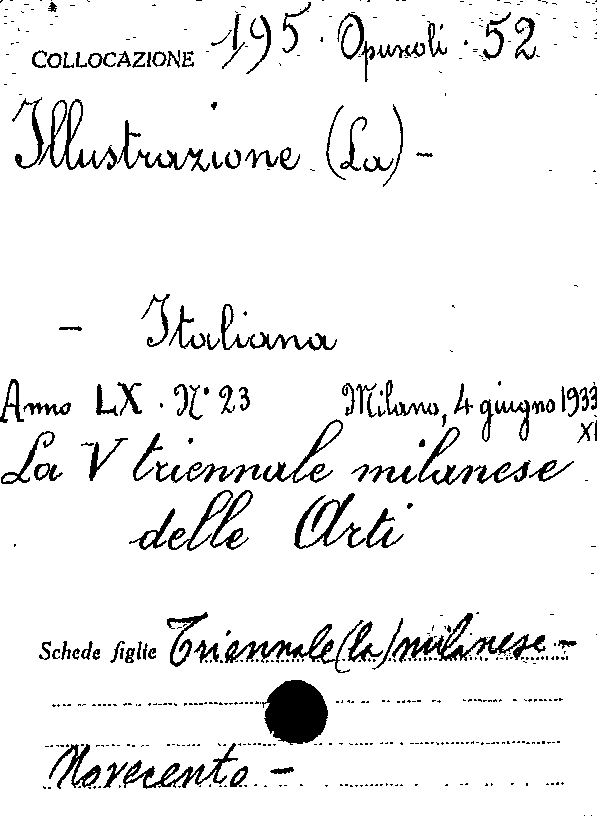 COLLOCAZIONE 195 · Opuscoli · 52
Illustrazione (La) -
- Italiana
Anno LX · N° 23 Milano, 4 giugno 1933
XI
La V triennale milanese
delle Arti
Schede figlie Triennale (la) milanese -
Novecento -